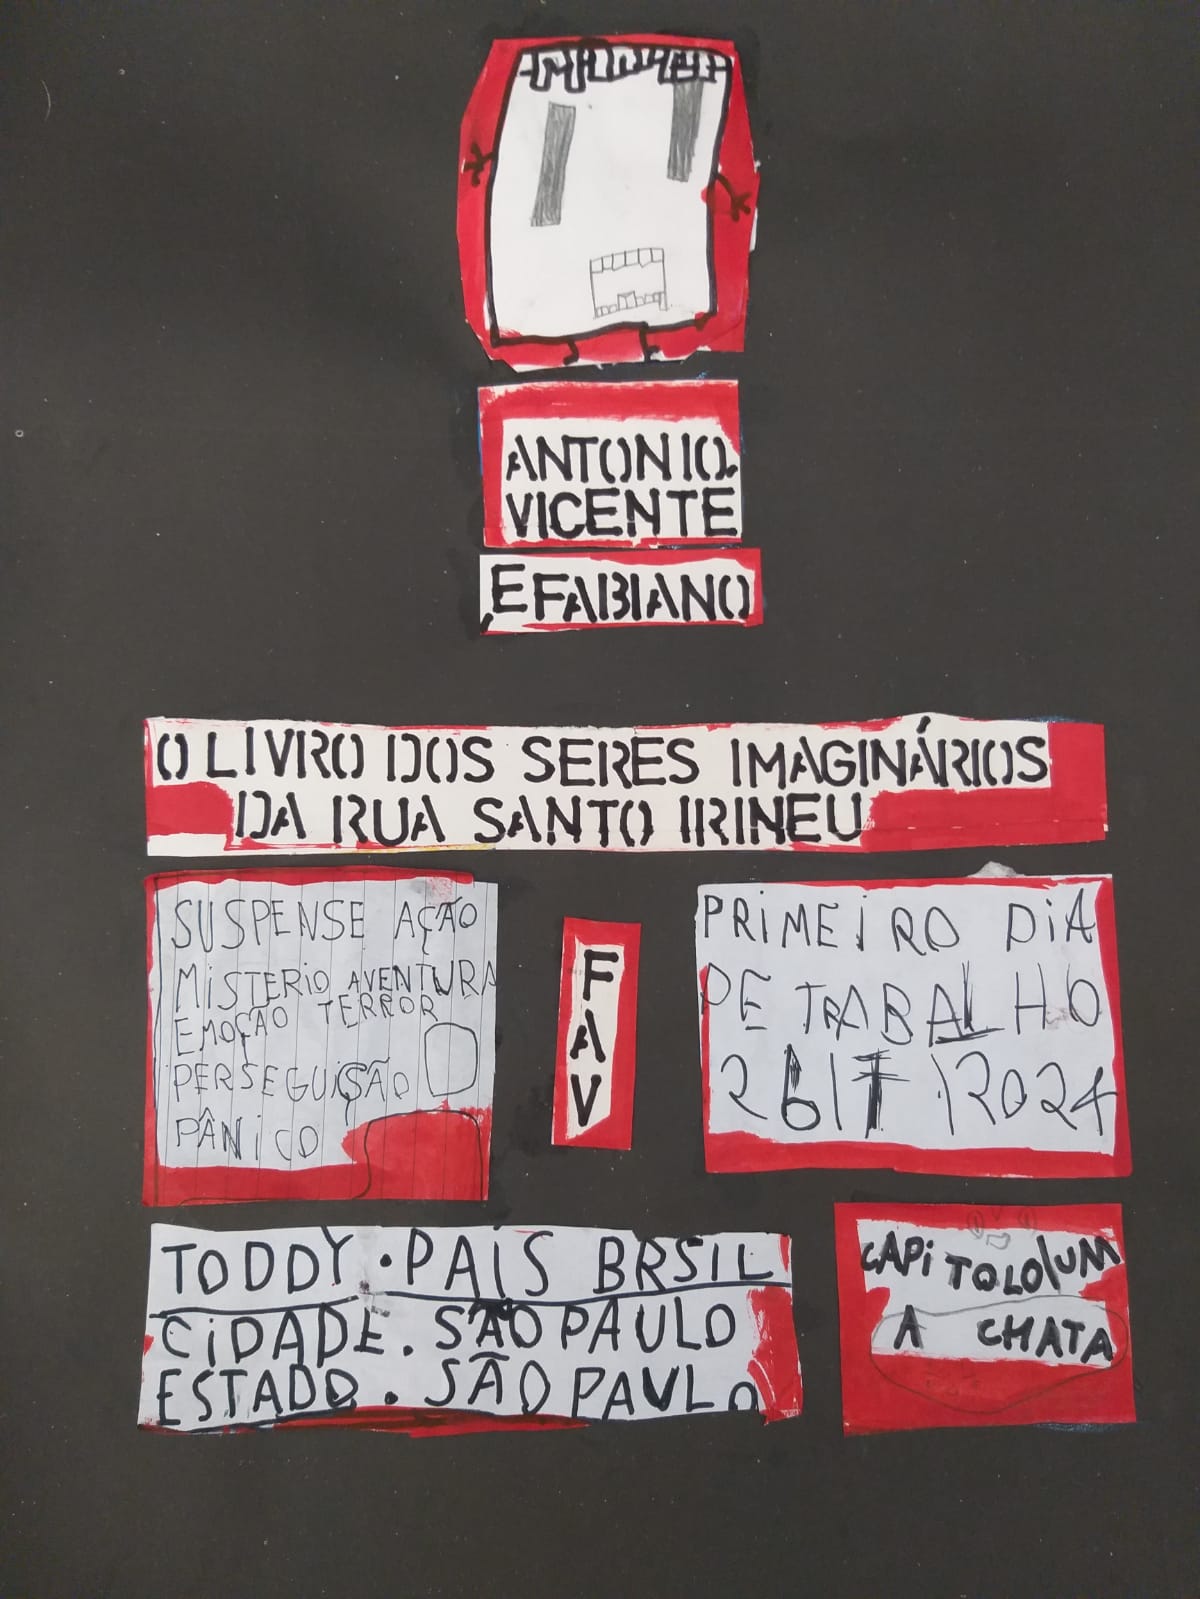 ANTONIO.
VICENTE
E FABIANO
O LIVRO DOS SERES IMAGINÁRIOS
DA RUA SANTO IRINEU
SUSPENSE AÇÃO
MISTERIO AVENTURA
EMOÇÃO TERROR
PERSEGUISÃO
PÂNICO
FAV
PRIMEIRO DIA
DE TRABALHO
26/7/2024
TODDY . PAÍS BRSIL
CIDADE. SÃO PAULO
ESTADO. SÃO PAULO
CAPITOLO UM
A CHATA